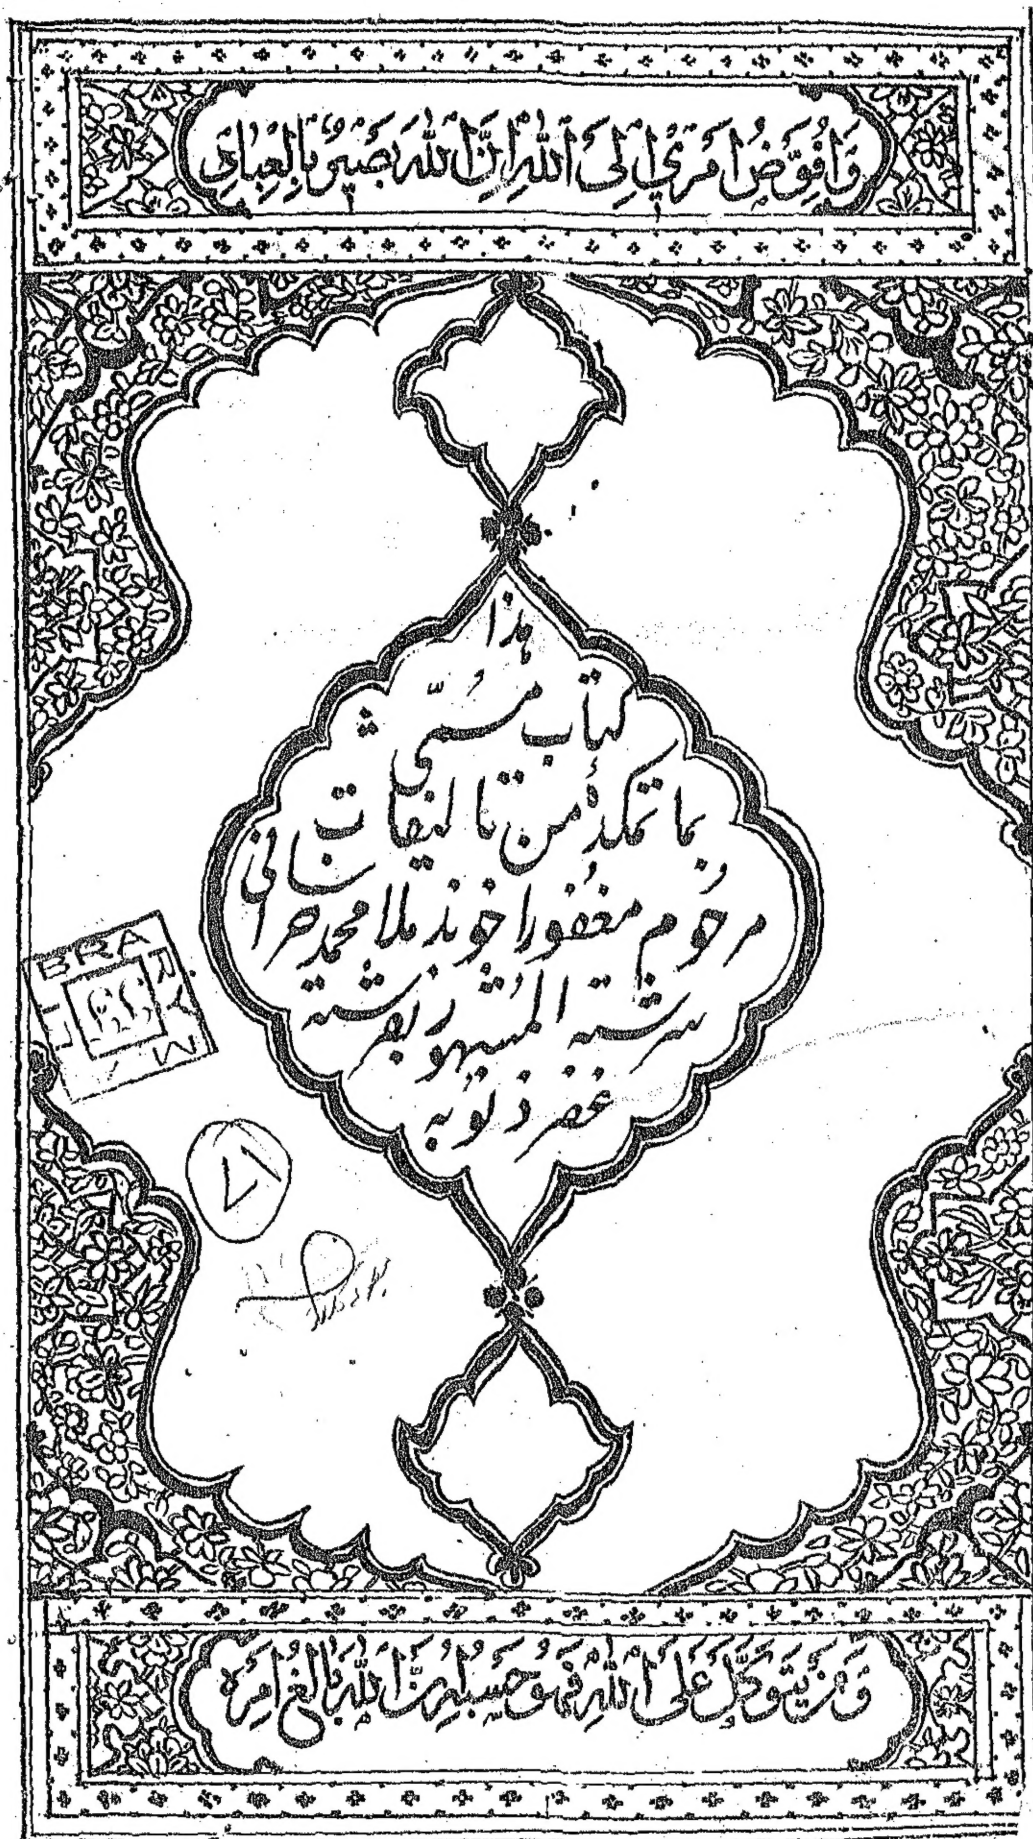 وَأُفَوِّضُ أَمْرِي إِلَى اللهِ إِنَّ اللهَ بَصِيرٌ بِالْعِبَادِ
هذا
کتاب مسمّی
بماتمکدهٔ من تالیفات
مرحوم مغفور اخوند ملا محمد خراسانی
سرشته المشهور بفرشته
غفر ذنوبه
BRARY
۷۱
وَمَن يَتَوَكَّلْ عَلَى اللهِ فَهُوَ حَسْبُهُ إِنَّ اللهَ بَالِغُ أَمْرِهِ